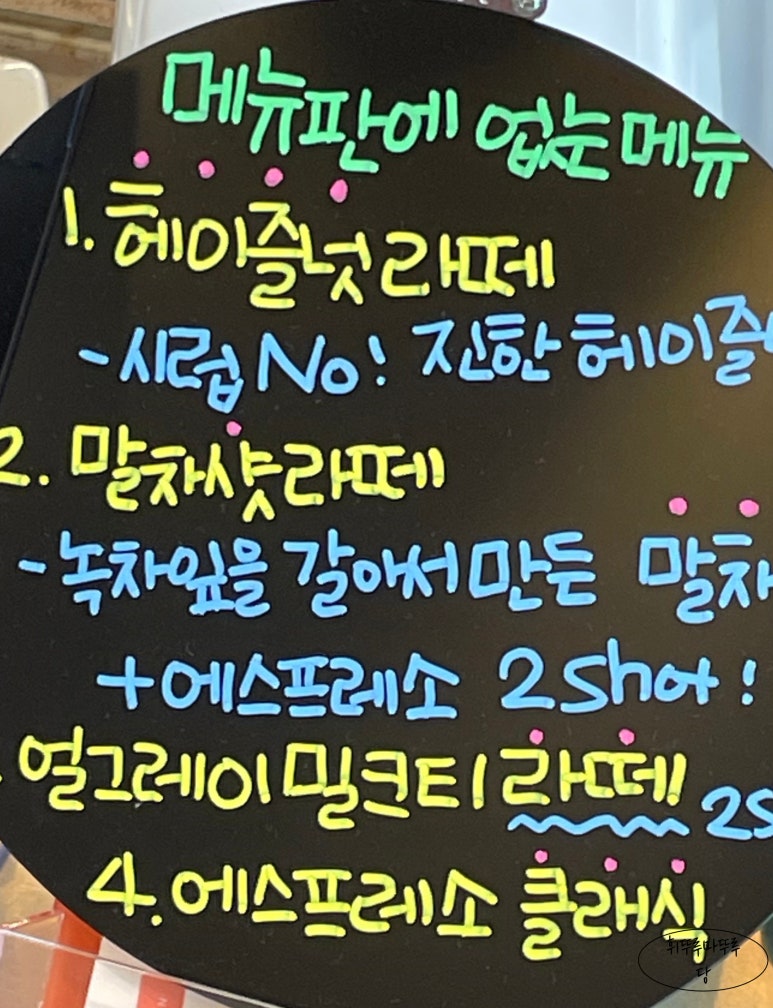 메뉴판에 없는 메뉴
1. 헤이즐넛 라떼
- 시럽 No! 진한 헤이즐
2. 말차샷 라떼
- 녹차잎을 갈아서 만든 말차
+ 에스프레소 2shot!
얼그레이 밀크티 라떼! 2S
4. 에스프레소 클래식
휘뚜루마뚜루
당